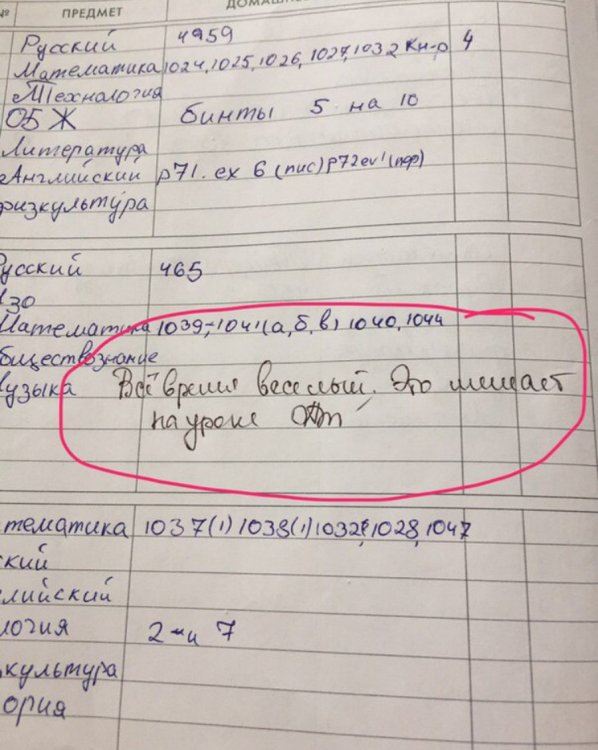 № ПРЕДМЕТ
Русский 4959
Математика 1024, 1025, 1026, 1027, 1032 Кн-р 4
Технология
ОБЖ бинты 5 на 10
Литература
Английский p71. ex 6 (пис) p72 ex 1 (пер)
физкультура
усский 465
изо
Математика 1039, 1041(а, б, в) 1040, 1044
бществознание
узыка Всё время веселый. Это мешает
на уроке
тематика 1037(1) 1038(1) 1032, 1028, 1047
ский
лийский
логия 2 7
культура
ория